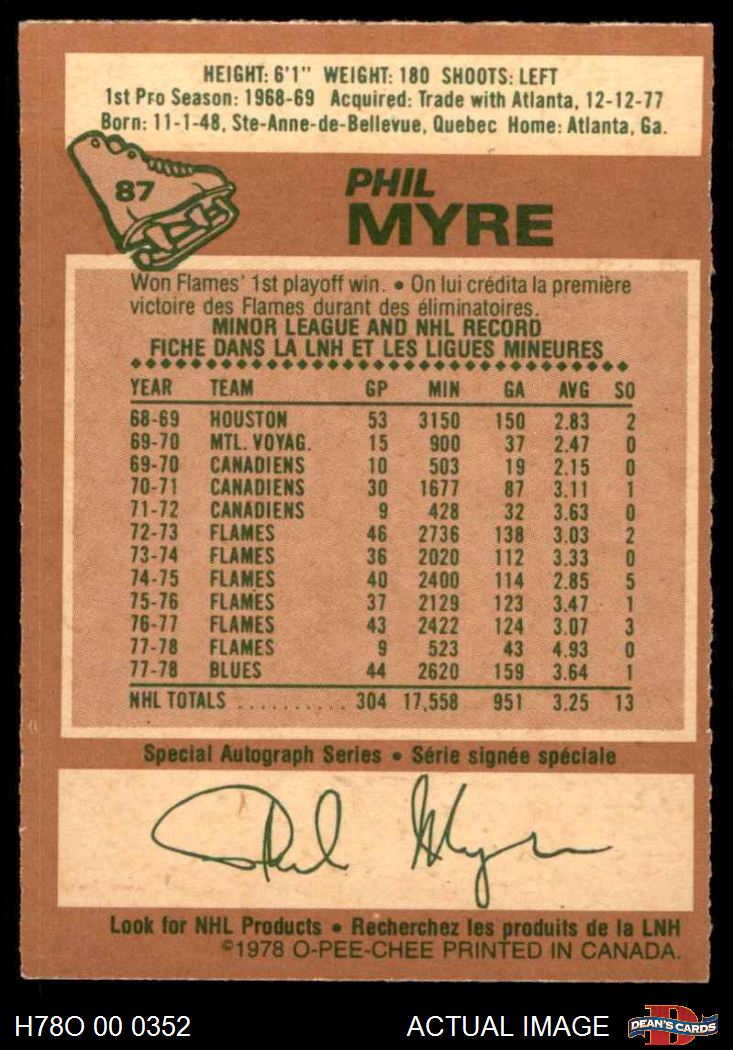 HEIGHT: 6'1" WEIGHT: 180 SHOOTS: LEFT
1st Pro Season: 1968-69 Acquired: Trade with Atlanta, 12-12-77
Born: 11-1-48, Ste-Anne-de-Bellevue, Quebec Home: Atlanta, Ga.
87
PHIL
MYRE
Won Flames' 1st playoff win. • On lui crédita la première
victoire des Flames durant des éliminatoires.
MINOR LEAGUE AND NHL RECORD
FICHE DANS LA LNH ET LES LIGUES MINEURES
YEAR TEAM GP MIN GA AVG SO
68-69 HOUSTON 53 3150 150 2.83 2
69-70 MTL. VOYAG. 15 900 37 2.47 0
69-70 CANADIENS 10 503 19 2.15 0
70-71 CANADIENS 30 1677 87 3.11 1
71-72 CANADIENS 9 428 32 3.63 0
72-73 FLAMES 46 2736 138 3.03 2
73-74 FLAMES 36 2020 112 3.33 0
74-75 FLAMES 40 2400 114 2.85 5
75-76 FLAMES 37 2129 123 3.47 1
76-77 FLAMES 43 2422 124 3.07 3
77-78 FLAMES 9 523 43 4.93 0
77-78 BLUES 44 2620 159 3.64 1
NHL TOTALS .......... 304 17,558 951 3.25 13
Special Autograph Series • Série signée spéciale
Phil Myre
Look for NHL Products • Recherchez les produits de la LNH
©1978 O-PEE-CHEE PRINTED IN CANADA.
H78O 00 0352 ACTUAL IMAGE D DEAN'S CARDS